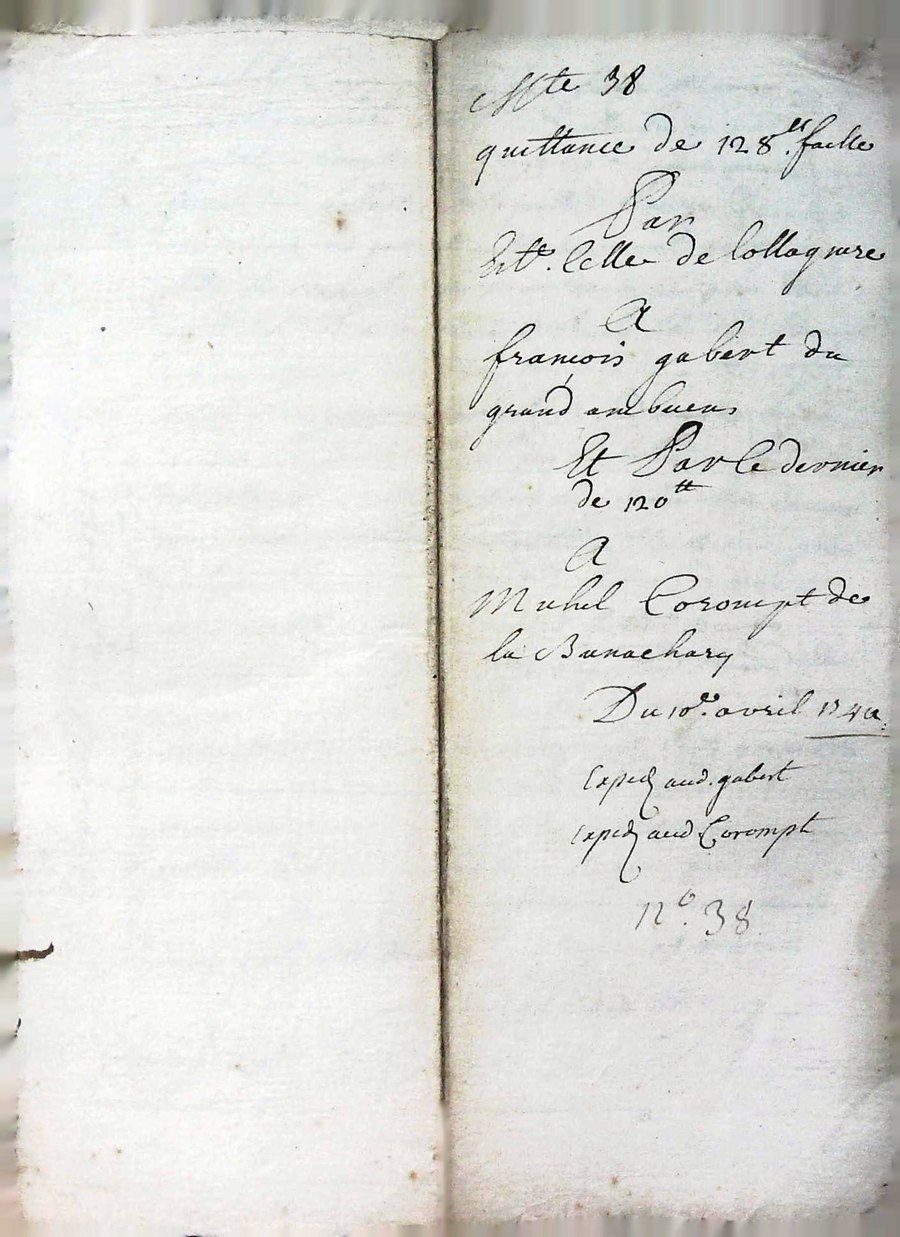 Mte 38
quittance de 128tt. faitte
Par
de Collagniere
A
françois gabert du
grand ambuens
Et Par le dernier
de 120tt
A
Michel Corompt de
la Bunachery
Du 10e. avril 174
Exped aud. gabert
exped aud Corompt
no. 38